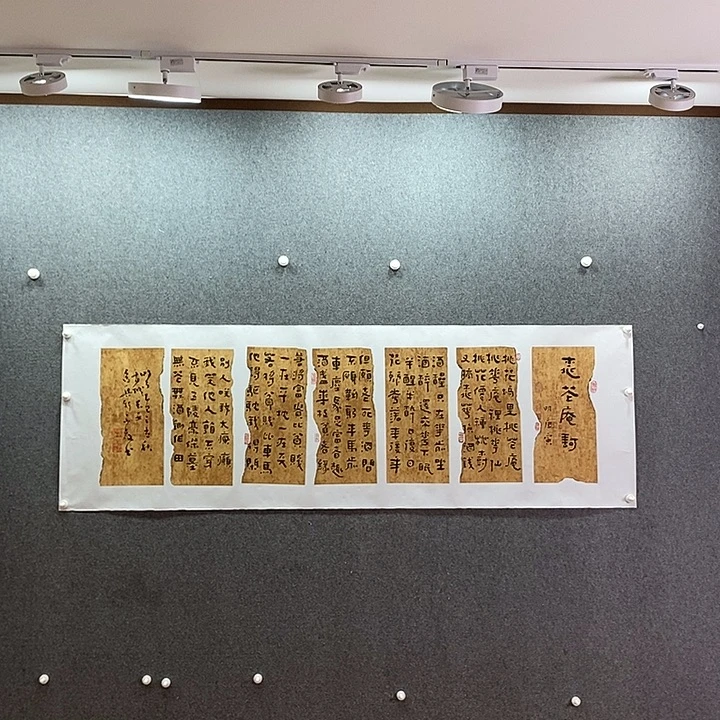 桃花庵
桃花塢里桃花庵
桃華庵裡桃華仙
桃花僊人種桃樹
又摘桃華換酒錢
酒醒只在華前坐
酒醉還來華下眠
半醒半醉日復日
花落華開年復年
但願老死花華酒間
不願鞠躬車馬前
車塵馬足富者趣
酒盞華枝貧者緣
若將富貴比貧賤
一在平地一在天
若將貧賤比車馬
他得驅馳我得閒
別人笑我太瘋癲
我笑他人看不穿
不見五陵豪傑墓
無花無酒鋤作田